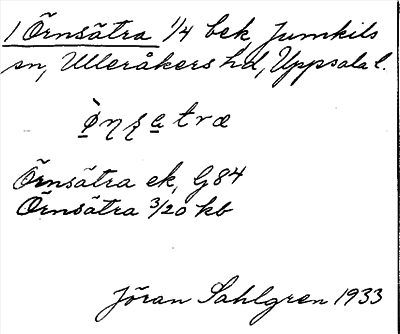 1 Örnsätra 1/4 bek Jumkils
sn, Ulleråkers hd, Uppsala l.
Örnsätra ek, G84
Örnsätra 3/20 kb
Jöran Sahlgren 1933